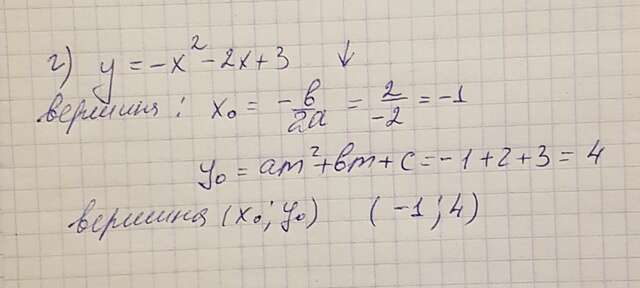 г) y = -x² - 2x + 3 ↓
вершина: x₀ = -в/2a = 2/-2 = -1
y₀ = am² + вm + c = -1 + 2 + 3 = 4
вершина (x₀; y₀) (-1; 4)